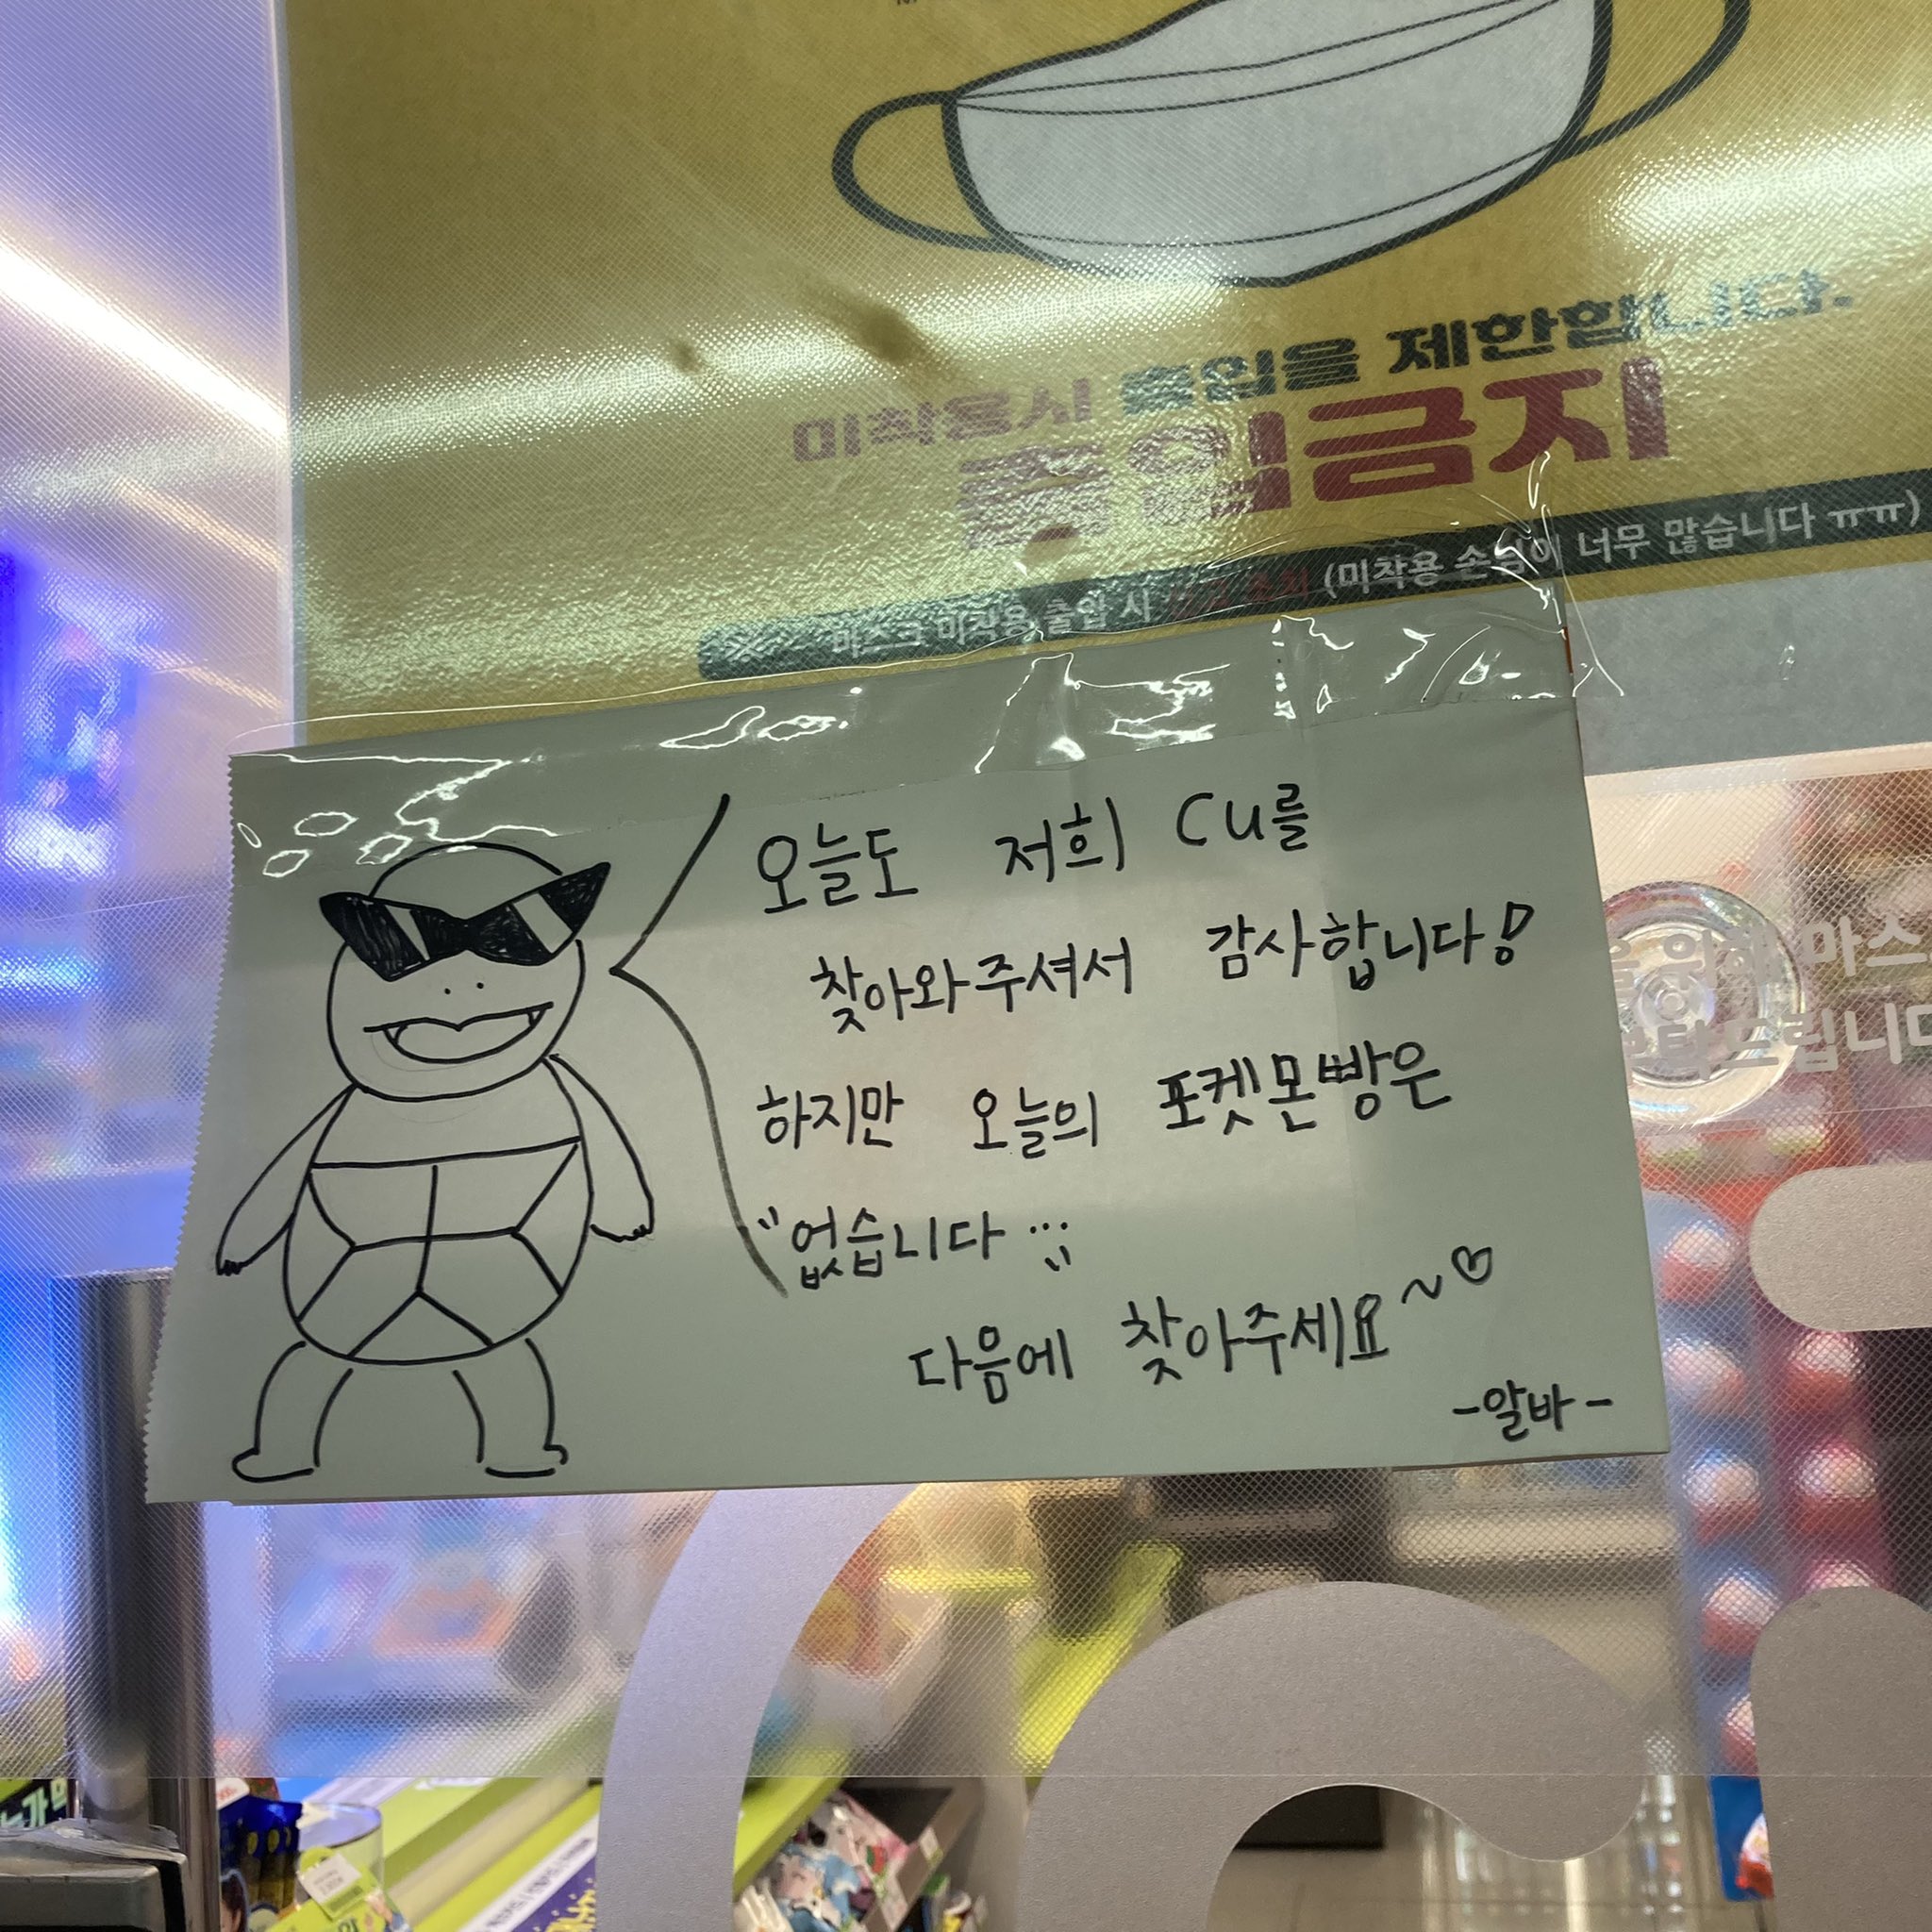 미착용시 출입을 제한합니다.
출입금지
※ 마스크 미착용 출입 시 (미착용 손님이 너무 많습니다 ㅠㅠ)
오늘도 저희 CU를
찾아와주셔서 감사합니다!
하지만 오늘의 포켓몬빵은
"없습니다 ...
다음에 찾아주세요~♡
-알바-
위해 마스
부탁드립니다